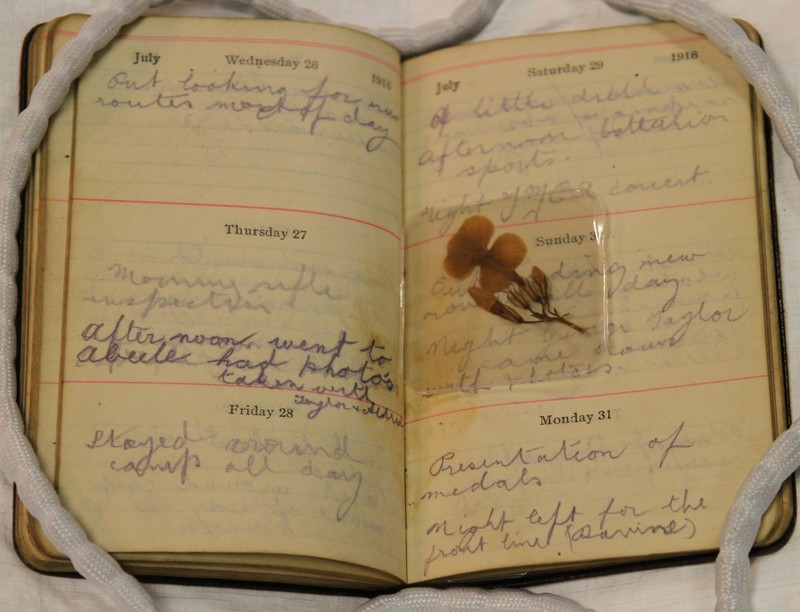 July Wednesday 26 1916
Out looking for new
routes most of day
Thursday 27
Morning rifle
inspection
afternoon went to
abeele had photo's
taken with
Taylor &
Friday 28
Stayed around
camp all day
July Saturday 29 1916
A little drill
afternoon battalion
sports.
Night YMCA concert
Sunday 3
Out ding new
rou all day
Night George Taylor
came down
with photos.
Monday 31
Presentation of
medals
Night left for the
front line (Ravine)